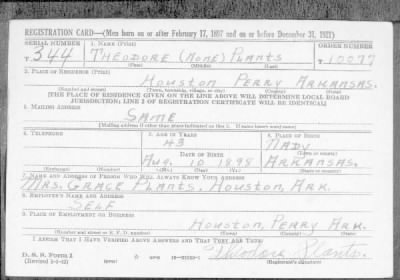 REGISTRATION CARD—(Men born on or after February 17, 1897 and on or before December 31, 1921)
SERIAL NUMBER 1. NAME (Print) ORDER NUMBER
T 344 THEODORE (NONE) PLANTS T 10077
(First) (Middle) (Last)
2. PLACE OF RESIDENCE (Print)
HOUSTON PERRY ARKANSAS.
(Number and street) (Town, township, village, or city) (County) (State)
[THE PLACE OF RESIDENCE GIVEN ON THE LINE ABOVE WILL DETERMINE LOCAL BOARD
JURISDICTION; LINE 2 OF REGISTRATION CERTIFICATE WILL BE IDENTICAL]
3. MAILING ADDRESS
SAME
[Mailing address if other than place indicated on line 2. If same insert word same]
4. TELEPHONE 5. AGE IN YEARS 6. PLACE OF BIRTH
43 NADY
DATE OF BIRTH (Town or county)
AUG. 10 1898 ARKANSAS.
(Exchange) (Number) (Mo.) (Day) (Yr.) (State or country)
7. NAME AND ADDRESS OF PERSON WHO WILL ALWAYS KNOW YOUR ADDRESS
MRS. GRACE PLANTS, HOUSTON, ARK.
8. EMPLOYER'S NAME AND ADDRESS
SELF
9. PLACE OF EMPLOYMENT OR BUSINESS
HOUSTON, PERRY ARK.
(Number and street or R. F. D. number) (Town) (County) (State)
I AFFIRM THAT I HAVE VERIFIED ABOVE ANSWERS AND THAT THEY ARE TRUE.
D. S. S. Form 1 Theodore Plants.
(Revised 1-1-42) (over) (Registrant's signature)